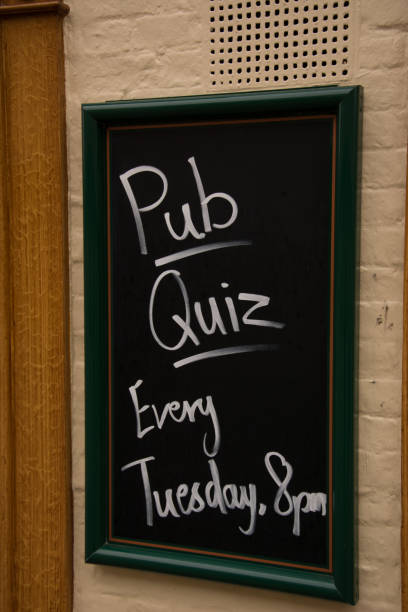 Pub
Quiz
Every
Tuesday, 8pm